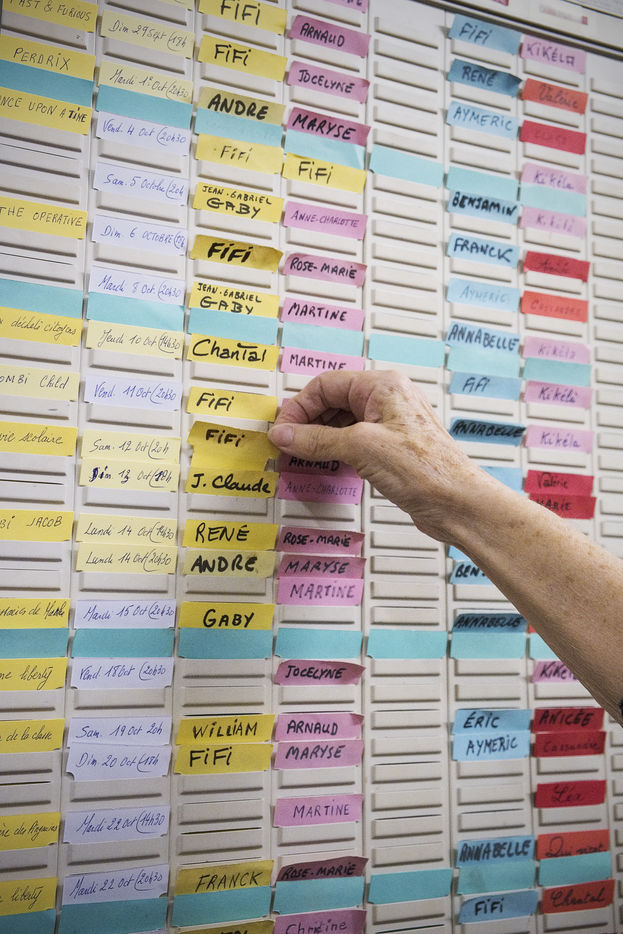 FAST & FURIOUS
Dim. 29 Sept (18h
FiFi
ARNAUD
FiFi
KIKÉLA
PERDRIX
Mardi 1er Oct (20h30
FiFi
JOCELYNE
RENÉ
Valérie
ONCE UPON A TIME
Vend. 4 Oct (20h30
ANDRE
MARYSE
AYMERIC
FiFi
FiFi
Sam. 5 Octobre (20h
JEAN-GABRIEL
GABY
BENJAMIN
Kikéla
THE OPERATIVE
Dim. 6 OCTOBRE
ANNE-CHARLOTTE
Kikéla
FiFi
ROSE-MARIE
FRANCK
Mardi 8 Oct (20h30
JEAN-GABRIEL
GABY
MARTINE
AYMERIC
CASSANDRE
décheti citoyens
Jeudi 10 Oct (14h30
Chantal
MARTINE
ANNABELLE
Kikéla
OMBI CHILD
Vend. 11 Oct (20h30
FiFi
FiFi
Kikéla
vie scolaire
Sam. 12 Oct (20h
FiFi
ANNABELLE
Kikéla
Dim 13 Oct (18h
J. Claude
ARNAUD
ANNE-CHARLOTTE
Valérie
MARIE
BI JACOB
Lundi 14 Oct (14h30
RENÉ
ROSE-MARIE
Lundi 14 Oct (20h30
ANDRE
MARYSE
MARTINE
BEN
Mardi 15 Oct (20h30
GABY
ANNABELLE
liberty
Vend. 18 Oct (20h30
JOCELYNE
KIKÉLA
de la classe
Sam. 19 Oct 20h
WILLIAM
ARNAUD
ÉRIC
ANICÉE
Dim 20 Oct (18h
FiFi
MARYSE
AYMERIC
Cassandre
Mardi 22 Oct (14h30
MARTINE
Léa
ANNABELLE
liberty
Mardi 22 Oct (20h30
FRANCK
ROSE-MARIE
FiFi
Chantal
Christine